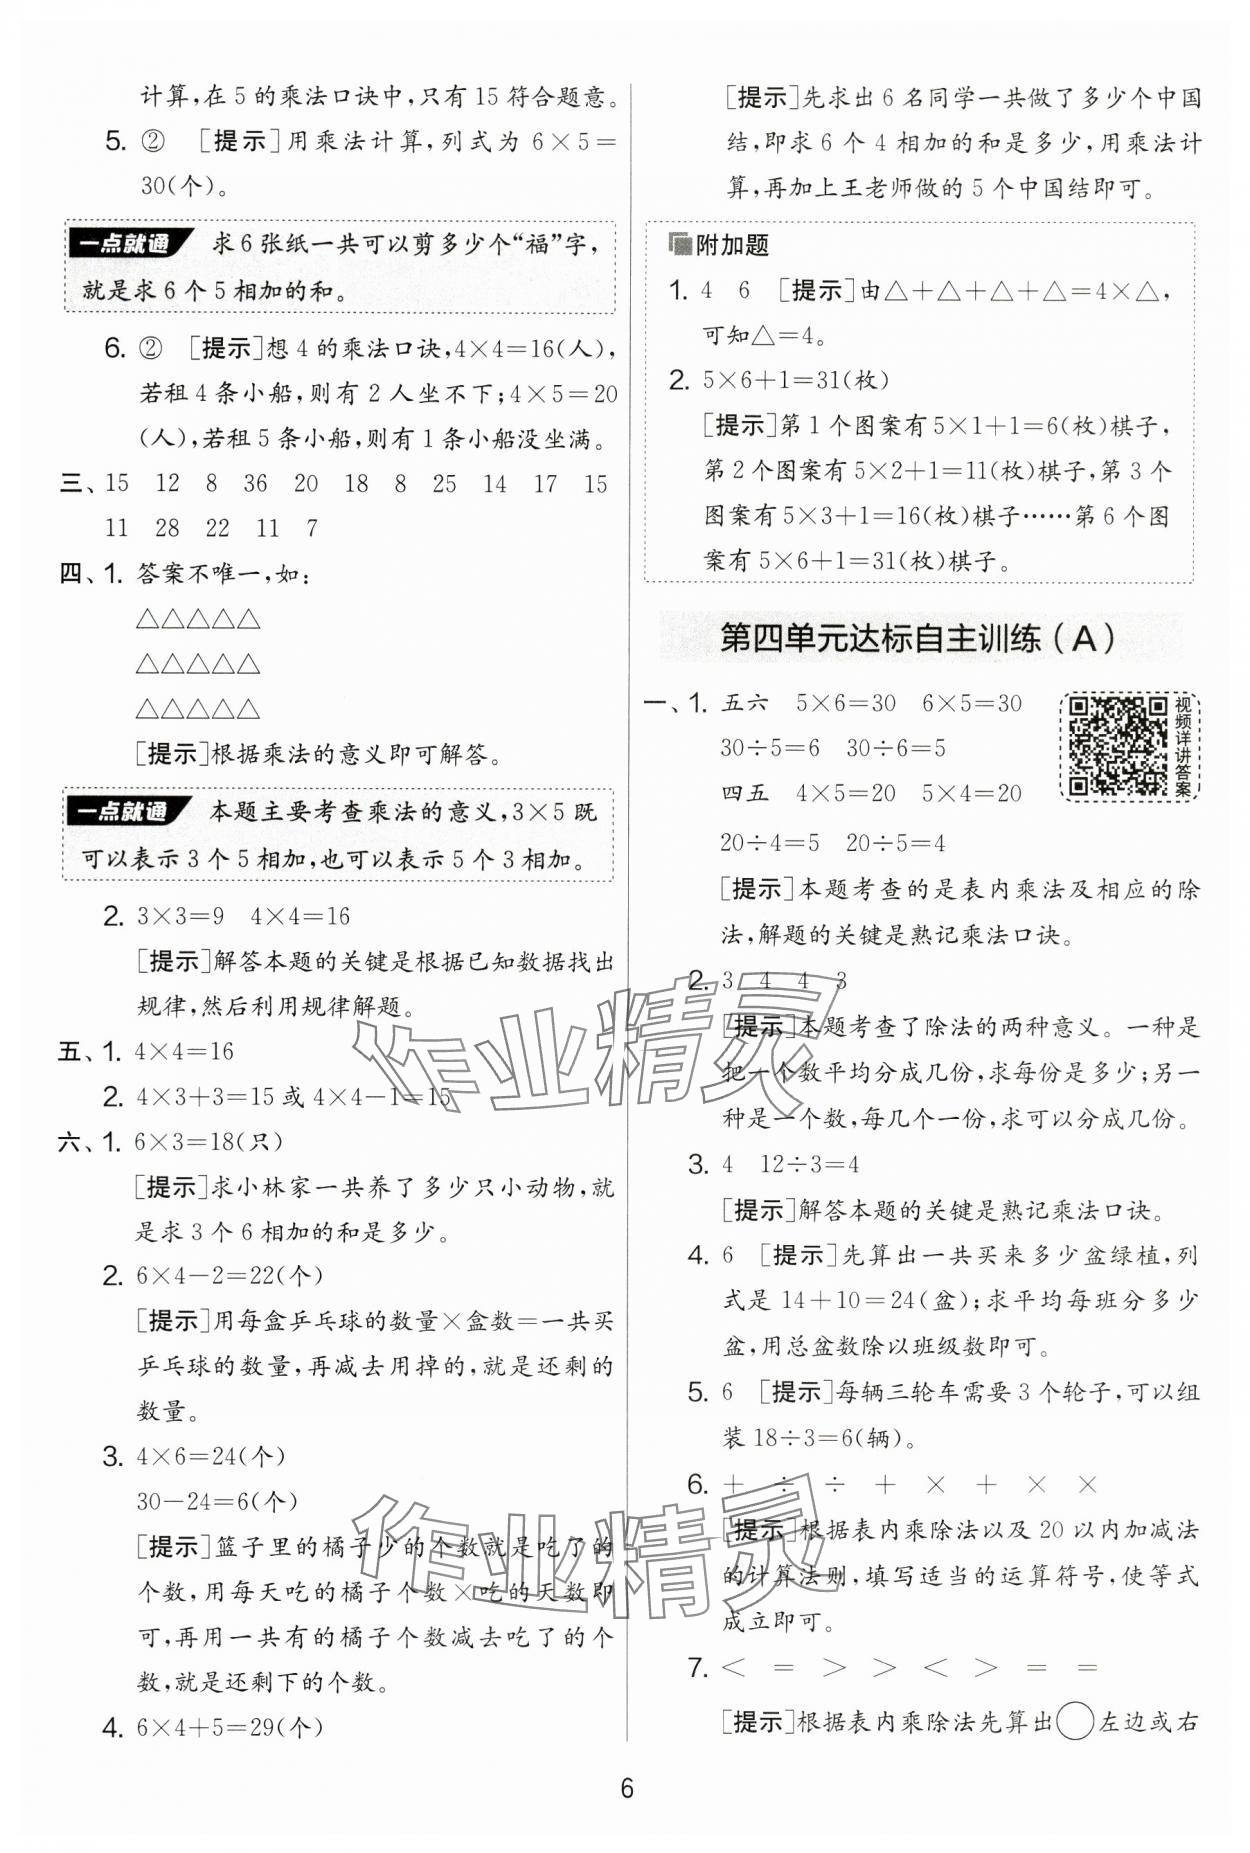 计算,在5的乘法口诀中,只有15符合题意。
5. ② [提示]用乘法计算,列式为6×5=
30(个)。
一点就通 求6张纸一共可以剪多少个“福”字,
就是求6个5相加的和。
6. ② [提示]想4的乘法口诀,4×4=16(人),
若租4条小船,则有2人坐不下;4×5=20
(人),若租5条小船,则有1条小船没坐满。
三、15 12 8 36 20 18 8 25 14 17 15
11 28 22 11 7
四、1. 答案不唯一,如:
△△△△△
△△△△△
△△△△△
[提示]根据乘法的意义即可解答。
一点就通 本题主要考查乘法的意义,3×5既
可以表示3个5相加,也可以表示5个3相加。
2. 3×3=9 4×4=16
[提示]解答本题的关键是根据已知数据找出
规律,然后利用规律解题。
五、1. 4×4=16
2. 4×3+3=15或4×4-1=15
六、1. 6×3=18(只)
[提示]求小林家一共养了多少只小动物,就
是求3个6相加的和是多少。
2. 6×4-2=22(个)
[提示]用每盒乒乓球的数量×盒数=一共买
乒乓球的数量,再减去用掉的,就是还剩的
数量。
3. 4×6=24(个)
30-24=6(个)
[提示]篮子里的橘子少的个数就是吃了的
个数,用每天吃的橘子个数×吃的天数即
可,再用一共有的橘子个数减去吃了的个
数,就是还剩下的个数。
4. 6×4+5=29(个)
[提示]先求出6名同学一共做了多少个中国
结,即求6个4相加的和是多少,用乘法计
算,再加上王老师做的5个中国结即可。
附加题
1. 4 6 [提示]由△+△+△+△=4×△,
可知△=4。
2. 5×6+1=31(枚)
[提示]第1个图案有5×1+1=6(枚)棋子,
第2个图案有5×2+1=11(枚)棋子,第3个
图案有5×3+1=16(枚)棋子……第6个图
案有5×6+1=31(枚)棋子。
第四单元达标自主训练(A)
一、1. 五六 5×6=30 6×5=30
30÷5=6 30÷6=5
四五 4×5=20 5×4=20
20÷4=5 20÷5=4
视频详讲答案
[提示]本题考查的是表内乘法及相应的除
法,解题的关键是熟记乘法口诀。
2. 3 4 4 3
[提示]本题考查了除法的两种意义。一种是
把一个数平均分成几份,求每份是多少;另一
种是一个数,每几个一份,求可以分成几份。
3. 4 12÷3=4
[提示]解答本题的关键是熟记乘法口诀。
4. 6 [提示]先算出一共买来多少盆绿植,列
式是14+10=24(盆);求平均每班分多少
盆,用总盆数除以班级数即可。
5. 6 [提示]每辆三轮车需要3个轮子,可以组
装18÷3=6(辆)。
6. + ÷ ÷ + × + × ×
[提示]根据表内乘除法以及20以内加减法
的计算法则,填写适当的运算符号,使等式
成立即可。
7. < = > > < > = =
[提示]根据表内乘除法先算出○左边或右
作业精灵
作业精灵
6